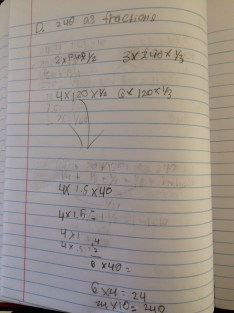 240 as fractions
3 x 240 x 1/3
4 x 120 x 1/2 6 x 120 x 1/3
4 x 1.5 x 40
4 x 1.5 =
4 x 1 = 4
6 x 40 =
6 x 4 = 24
24 x 10 = 240